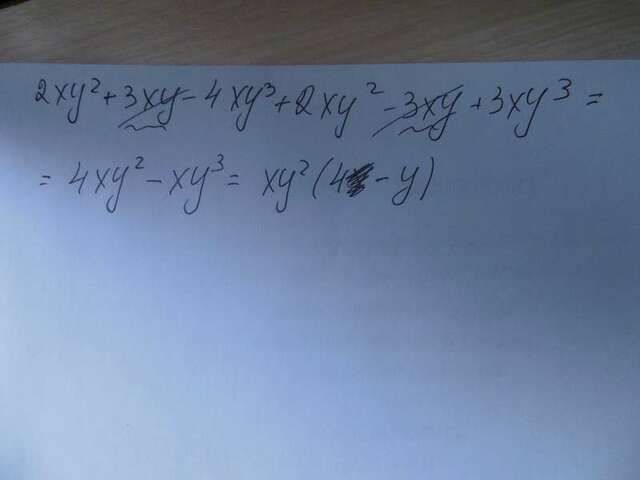 2xy²+3xy-4xy³+2xy²-3xy+3xy³=
=4xy²-xy³=xy²(4-y)